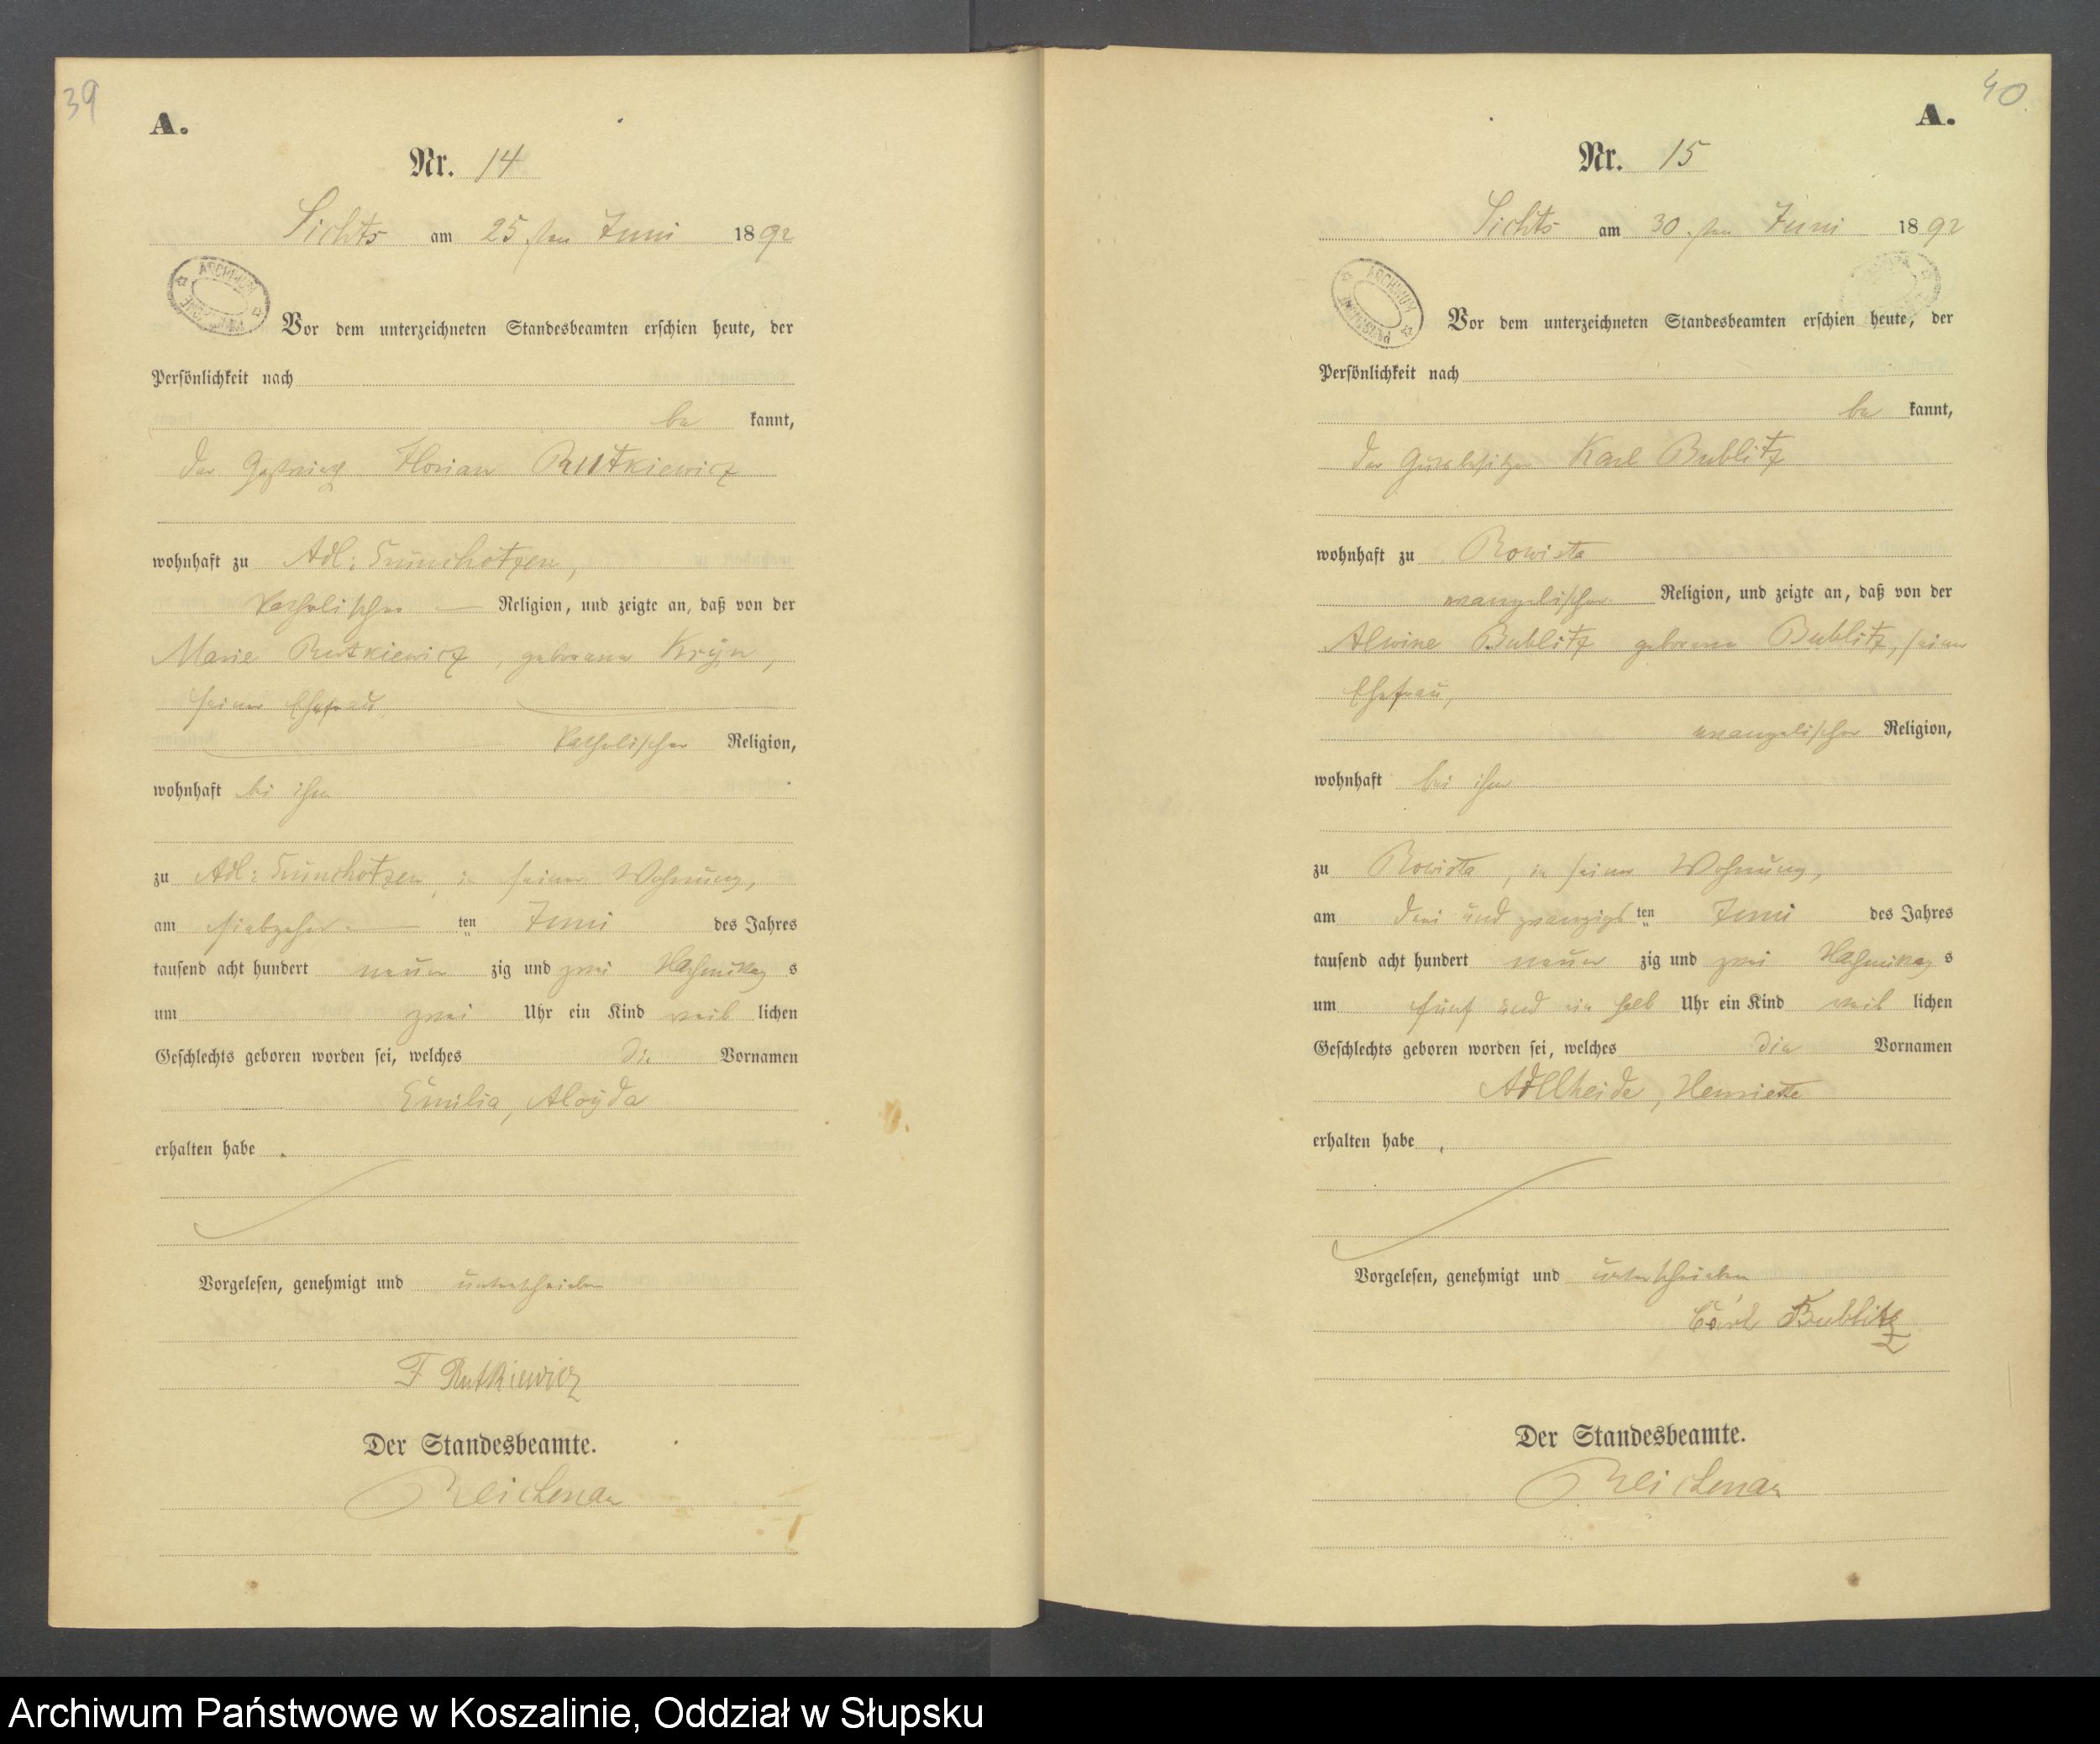 39
A.
Nr. 14
Lichts am 25 sten Juni 1892
ARCHIWUM
Vor dem unterzeichneten Standesbeamten erschien heute, der
Persönlichkeit nach
be kannt,
der Florian Rutkiewicz
wohnhaft zu Adl:
katholischer Religion, und zeigte an, daß von der
Marie Rutkiewicz, geborene Kryn,
seiner Ehefrau
katholischer Religion,
wohnhaft bei ihm
zu Adl: in seiner Wohnung,
am siebzehn ten Juni des Jahres
tausend acht hundert neun zig und zwei Nachmittag s
um zwei Uhr ein Kind weib lichen
Geschlechts geboren worden sei, welches die Vornamen
Emilia, Aloyda
erhalten habe.
Vorgelesen, genehmigt und unterschrieben
F Rutkiewicz
Der Standesbeamte.
Reichenau
40
A.
Nr. 15
Lichts am 30. sten Juni 1892
ARCHIWUM
Vor dem unterzeichneten Standesbeamten erschien heute, der
Persönlichkeit nach
be kannt,
der Gutsbesitzer Karl Bublitz
wohnhaft zu Rowista
evangelischer Religion, und zeigte an, daß von der
Alwine Bublitz geborene Bublitz, seiner
Ehefrau,
evangelischer Religion,
wohnhaft bei ihm
zu Rowista, in seiner Wohnung,
am drei und zwanzigs ten Juni des Jahres
tausend acht hundert neun zig und zwei Nachmittag s
um fünf und ein halb Uhr ein Kind weib lichen
Geschlechts geboren worden sei, welches die Vornamen
Adelheide, Henriette
erhalten habe,
Vorgelesen, genehmigt und unterschrieben
Carl Bublitz
Der Standesbeamte.
Reichenau
Archiwum Państwowe w Koszalinie, Oddział w Słupsku